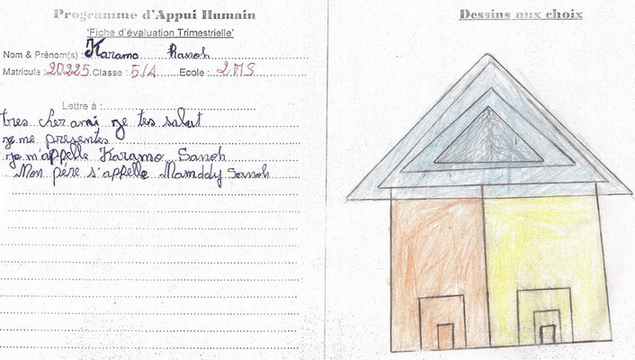 Programme d'Appui Humain
'Fiche d'évaluation Trimestrielle'
Nom & Prénom(s) : Karamo Sanoh
Matricule : 20225 Classe : 5/A Ecole : 2MS
Lettre à :
tres cher ami je tes salut
je me presentes
je m'appelle Karamo Sanoh
Mon père s'appelle Mamddy Sanoh
Dessins aux choix